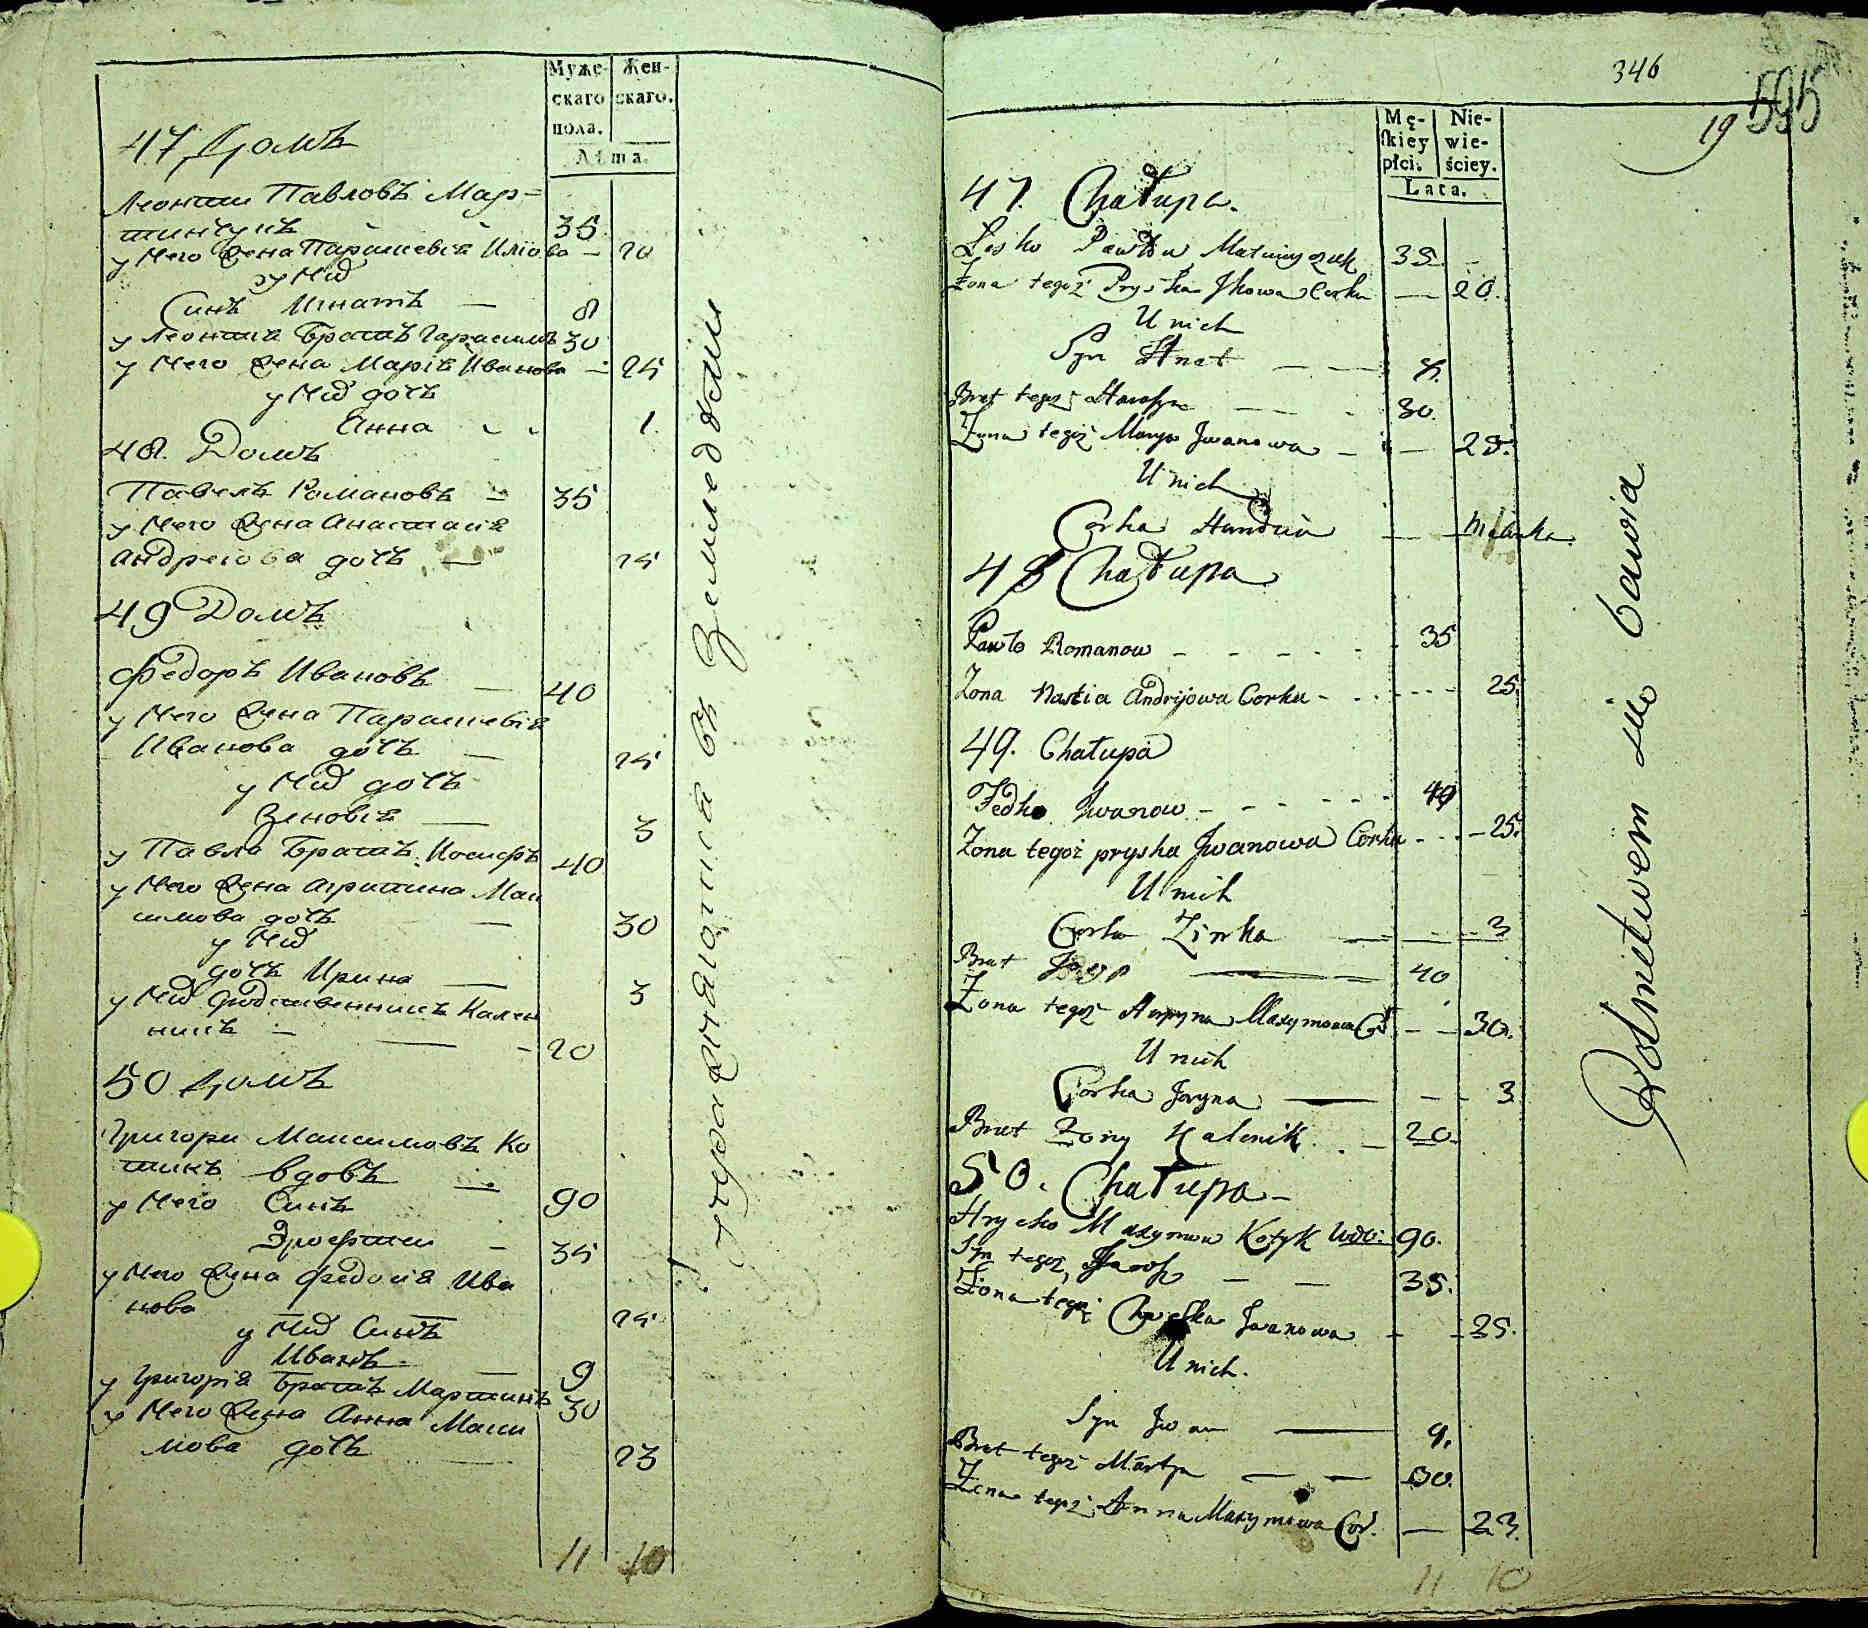 Муже-
скаго
пола.
Жен-
скаго.
Лѣта.
47 Домъ
Леонтии Павловъ Мар=
тинчукъ 35
у Него Жена Парашевия Илiова — 20
у Нид
Синъ Игнатъ — 8
у Леонтия Братъ Гарасимъ 30
у Него Жена Мария Иванова — 25
у Нид дочъ
Анна 1
48. Домъ
Павелъ Романовъ — 35
у Него Жена Анастасия
Андреева дочъ — 25
49 Домъ
Федоръ Ивановъ — 40
у Него Жена Парашевия
Иванова дочъ — 25
у Нид дочъ
Зеновия — 3
у Павла Братъ Иосифъ 40
у Него Жена Агрипина Мак
симова дочъ — 30
у Нид
дочъ Ирина — 3
у Нид Родственникъ Кален
никъ — 20
50 Домъ
Григори Максимовъ Ко
тикъ вдовъ — 90
у Него Синъ
Ярофтеи — 35
у Него Жена Федосия Ива
нова 25
у Нид Синъ
Иванъ — 9
у Григория Братъ Мартинъ 30
у Него Жена Анна Макси
мова дочъ 23
11 10
Упражняются въ Земледѣлии
346
595
19
Mę-
skiey
płci.
Nie-
wie-
ściey.
Lata.
47. Chałupa.
Lesko Pawłow Matwiyczuk 35. –
Zona tegoż Pryska Jlkowa Corka — 20.
U nich
Syn Hnat — — 8.
Brat tegoż Harasym — — 30.
Zona tegoż Marya Jwanowa – — 25.
U nich
Corka Handzia — — Malinka
48 Chałupa
Pawło Romanow - - - - 35
Zona Nastia Andrijowa Corka - - - - 25.
49. Chałupa
Fedko Jwanow - - - - 40
Zona tegoż pryska Jwanowa Corka - - - 25.
U nich
Corka Zinka — — 3
Brat Josyp — 40
Zona tegoż Horpyna Maxymowa Cor. – — 30.
U nich
Corka Jaryna — – - 3
Brat Zony Kalenik — 20.
50. Chałupa –
Hrycko Maxymow Kotyk Wdo: 90.
Syn tegoż Jarosz — — 35.
Zona tegoż Chweśka Jwanowa - - 25.
U nich.
Syn Jwan — 9.
Brat tegoż Martyn — — 30.
Zona tegoż Anna Maxymowa Cor. — 23.
11 10
Rolnictwem się bawią